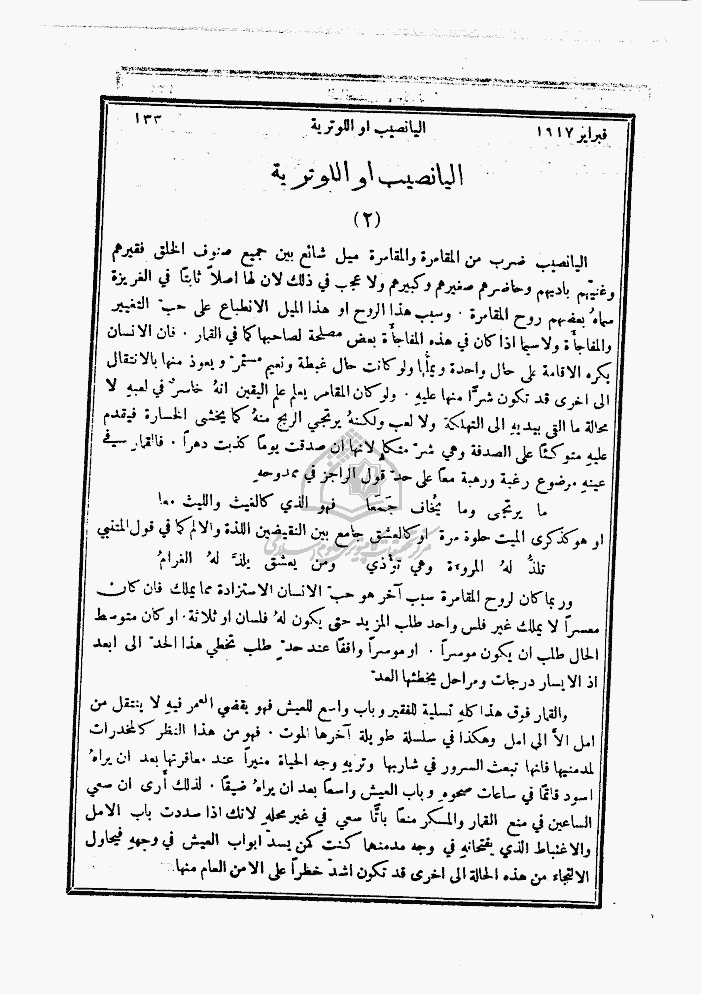 فبراير ١٩١٧
اليانصيب او اللوترية
١٣٣
اليانصيب او اللوترية
(٢)
اليانصيب ضرب من المقامرة والمقامرة ميل شائع بين جميع صنوف الخلق فقيرهم
وغنيّهم باديهم وحاضرهم صغيرهم وكبيرهم ولا عجب في ذلك لان لها اصلاً ثابتًا في الغريزة
سماهُ بعضهم روح المقامرة . وسبب هذا الروح او هذا الميل الانطباع على حبّ التغيير
والمفاجأة ولاسيما اذا كان في هذه المفاجأة بعض مصلحة لصاحبها كما في القمار . فان الانسان
يكره الاقامة على حال واحدة ويملّها ولو كانت حال غبطة ونعيم مستمرّ ويعوذ منها بالانتقال
الى اخرى قد تكون شرًّا منها عليهِ . ولو كان المقامر يعلم علم اليقين انهُ خاسرٌ في لعبهِ لا
محالة ما التى بيديهِ الى التهلكة ولا لعب ولكنهُ يرتجي الربح منهُ كما يخشى الخسارة فيقدم
عليهِ متوكئًا على الصدفة وهي شرّ متكاٍ لانها ان صدقت يومًا كذبت دهرًا . فالقمار في
عينهِ مرضوع رغبة ورهبة معًا على حدّ قول الراجز في ممدوحهِ
ما يرتجى وما يُخاف جَمَعَا فهو الذي كالغيث والليث معا
او هو كذكرى الميت حلوة مرة او كالعشق جامع بين النقيضين اللذة والالم كما في قول المتنبي
تلذُّ لهُ المروءة وهي تؤذي ومن يعشق يلذُّ لهُ الغرامُ
وربما كان لروح المقامرة سبب آخر هو حبّ الانسان الاستزادة مما يملك فان كان
معسراً لا يملك غير فلس واحد طلب المزيد حتى يكون لهُ فلسان او ثلاثة . او كان متوسط
الحال طلب ان يكون موسراً . او موسراً واقفًا عند حدّ طلب تخطي هذا الحدّ الى ابعد
اذ الايسار درجات ومراحل يخطئها العدّ
والقمار فوق هذا كلهِ تسلية للفقير وباب واسع للعيش فهو يقضي العمر فيهِ لا ينتقل من
امل الاَّ الى امل وهكذا في سلسلة طويلة آخرها الموت . فهو من هذا النظر كالمخدرات
لمدمنيها فانها تبعث السرور في شاربها وتريهِ وجه الحياة منيراً عند معاقرتها بعد ان يراهُ
اسود قاتمًا في ساعات صحوهِ وباب العيش واسعًا بعد ان يراهُ ضيقًا . لذلك أرى ان سعي
الساعين في منع القمار والمسكر منعًا باتًّا سعي في غير محلهِ لانك اذا سددت باب الامل
والاغتباط الذي يفتحانهِ في وجه مدمنهما كنت كمن يسدّ ابواب العيش في وجههِ فيحاول
الالتجاء من هذه الحالة الى اخرى قد تكون اشدّ خطراً على الامن العام منها .